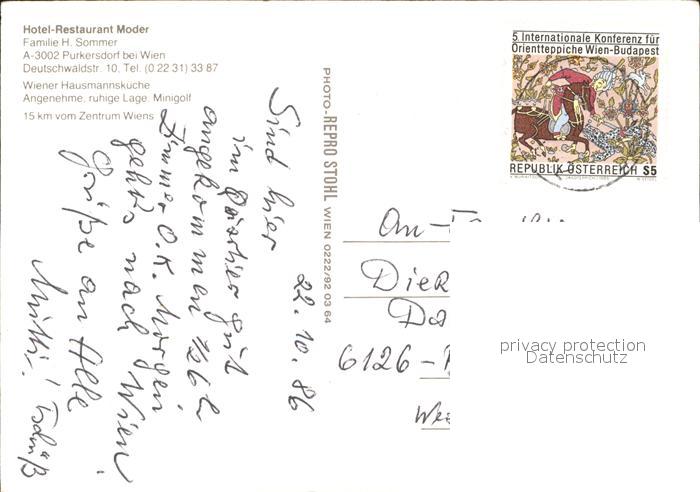 Hotel-Restaurant Moder
Familie H. Sommer
A-3002 Purkersdorf bei Wien
Deutschwaldstr. 10, Tel. (0 22 31) 33 87
Wiener Hausmannsküche
Angenehme, ruhige Lage. Minigolf
15 km vom Zentrum Wiens
PHOTO-REPRO STOHL WIEN 0222/92 03 64
5. Internationale Konferenz für
Orientteppiche Wien-Budapest
REPUBLIK ÖSTERREICH S5
22.10.86
Sind hier
im Quartier gut
angekommen
Zimmer O.K. Morgen
geht's nach Wien
Grüße an Alle
Mutti!
An
Die
6126-
privacy protection
Datenschutz